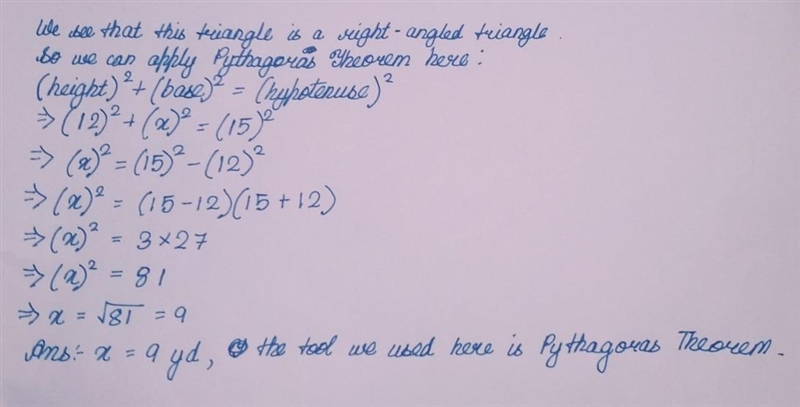 We see that this triangle is a right-angled triangle.
So we can apply Pythagoras Theorem here:
(height)² + (base)² = (hypotenuse)²
⇒ (12)² + (x)² = (15)²
⇒ (x)² = (15)² − (12)²
⇒ (x)² = (15 − 12)(15 + 12)
⇒ (x)² = 3 × 27
⇒ (x)² = 81
⇒ x = √81 = 9
Ans:- x = 9 yd, the tool we used here is Pythagoras Theorem.